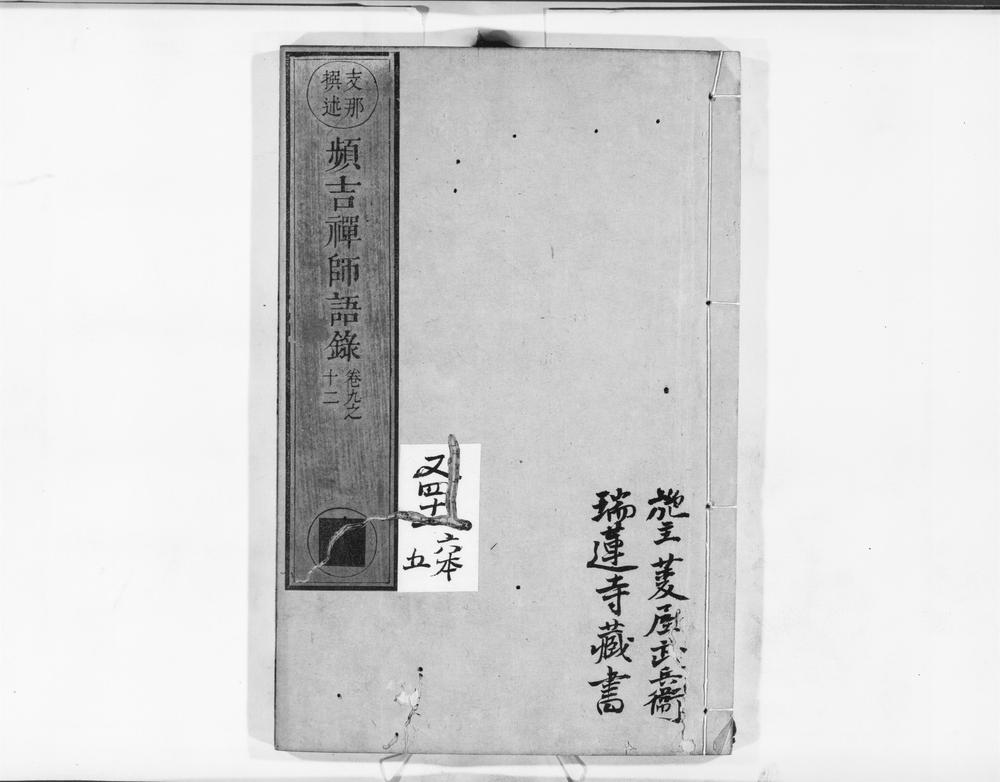 施主菱屋武兵衛
瑞蓮寺藏書
支那
撰述
頻吉禪師語錄
卷九之
十二
又四十
六本
五